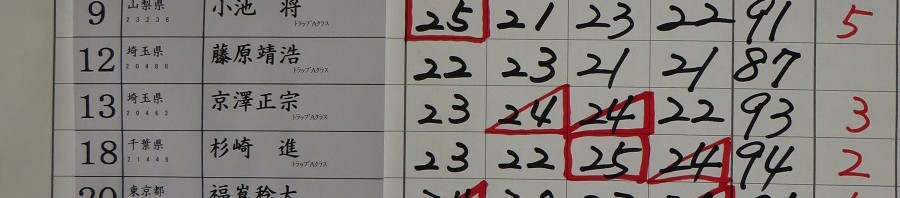 9 山梨県 小池 将 25 21 23 22 91 5
23236
12 埼玉県 藤原靖浩 22 23 21 21 87
20486 トラップAクラス
13 埼玉県 京澤正宗 23 24 24 22 93 3
20462 トラップAクラス
18 千葉県 杉崎 進 23 22 25 24 94 2
21446 トラップAクラス
20 東京都